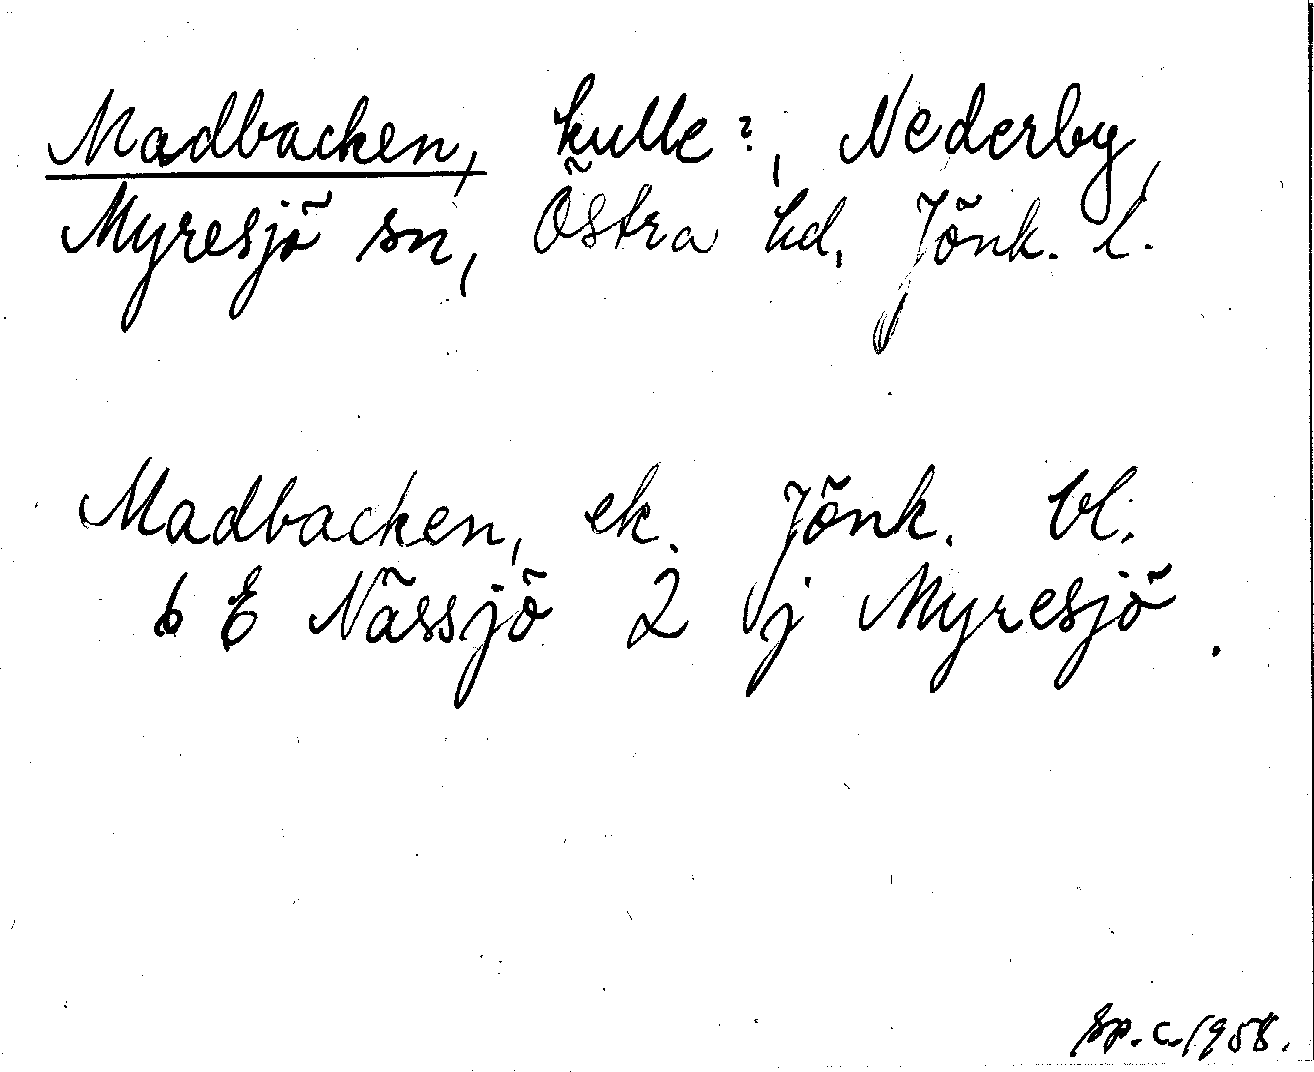 Madbacken, kulle?, Nederby,
Myresjö sn, Östra hd, Jönk. l.
Madbacken, ek. Jönk. bl.
6 E Nässjö 2 j Myresjö.
Sp. c. 1958.